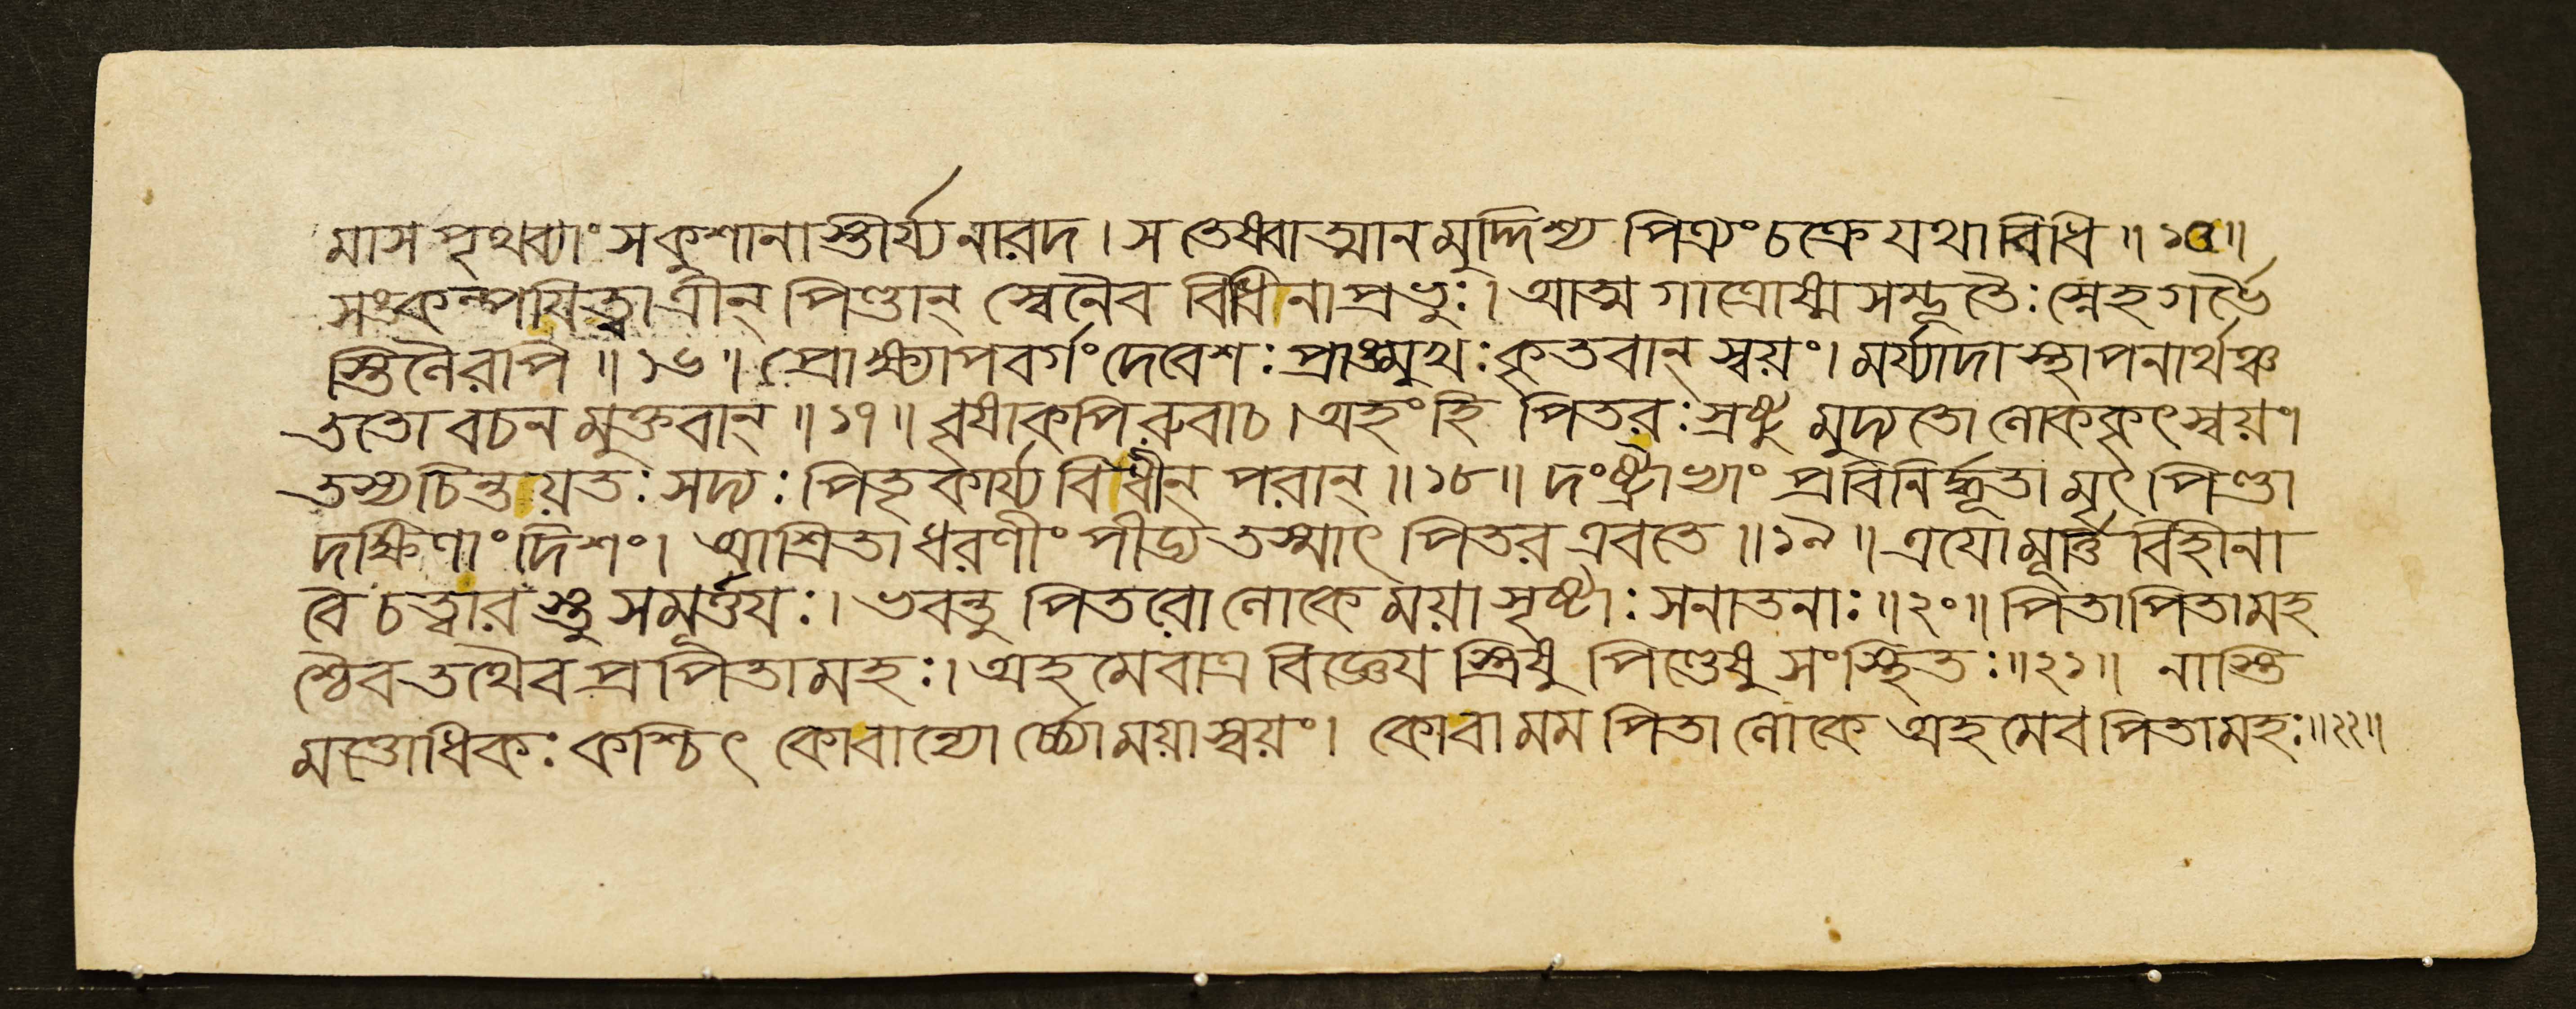 মাস পৃথব্যাং সকুশানাস্তীর্য্য নারদ । স তেষ্বাত্মানমুদ্দিশ্য পিত্র্যং চক্রে যথা বিধি ॥ ১৫ ॥
সংকল্পযিত্বা ত্রীন্ পিণ্ডান্ স্বেনৈব বিধিনা প্রভুঃ । আত্ম গাত্রোষ্ম সম্ভূতৈঃ স্নেহ গর্ভৈ
স্তিলৈরপি ॥ ১৬ ॥ প্রোক্ষ্যাপবর্গং দেবেশঃ প্রাঙ্মুখঃ কৃতবান্ স্বয়ং । মর্য্যাদা স্থাপনার্থঞ্চ
ততো বচন মুক্তবান্ ॥ ১৭ ॥ বৃষাকপি রুবাচ । অহং হি পিতরঃ স্রষ্টু মুদ্যতো লোককৃৎ স্বয়ং ।
তস্য চিন্তায়তঃ সদ্যঃ পিতৃকার্য্য বিধীন্ পরান্ ॥ ১৮ ॥ দংষ্ট্রাভ্যাং প্রবিনির্দ্ধূতা মৃৎ পিণ্ডা
দক্ষিণাং দিশং । আশ্রিতা ধরণীং পীড্য তস্মাৎ পিতর এবতে ॥ ১৯ ॥ এযো মূর্ত্তি বিহীনা
বৈ চত্বার স্তু সমূর্ত্তযঃ । ভবন্তু পিতরো লোকে ময়া সৃষ্টাঃ সনাতনাঃ ॥ ২০ ॥ পিতা পিতামহ
শ্চৈব তথৈব প্রপিতামহঃ । অহমেবাত্র বিজ্ঞেয স্ত্রিষু পিণ্ডেষু সংস্থিতঃ ॥ ২১ ॥ নাস্তি
মত্তোধিকঃ কশ্চিৎ কোবান্যো র্চ্চ্যো ময়া স্বয়ং । কোবা মম পিতা লোকে অহমেব পিতামহঃ ॥ ২২ ॥